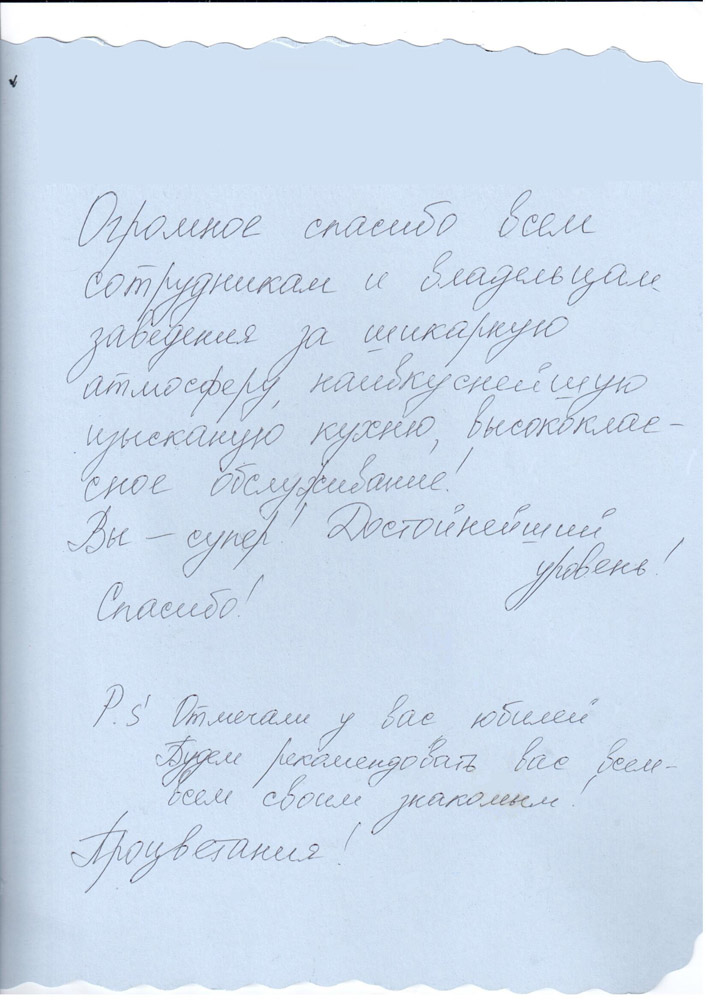 Огромное спасибо всем
сотрудникам и владельцам
заведения за шикарную
атмосферу, наивкуснейшую
изысканую кухню, высококлас-
сное обслуживание!
Вы – супер! Достойнейший
уровень!
Спасибо!
P.S Отмечали у вас юбилей
Будем рекомендовать вас всем-
всем своим знакомым!
Процветания!